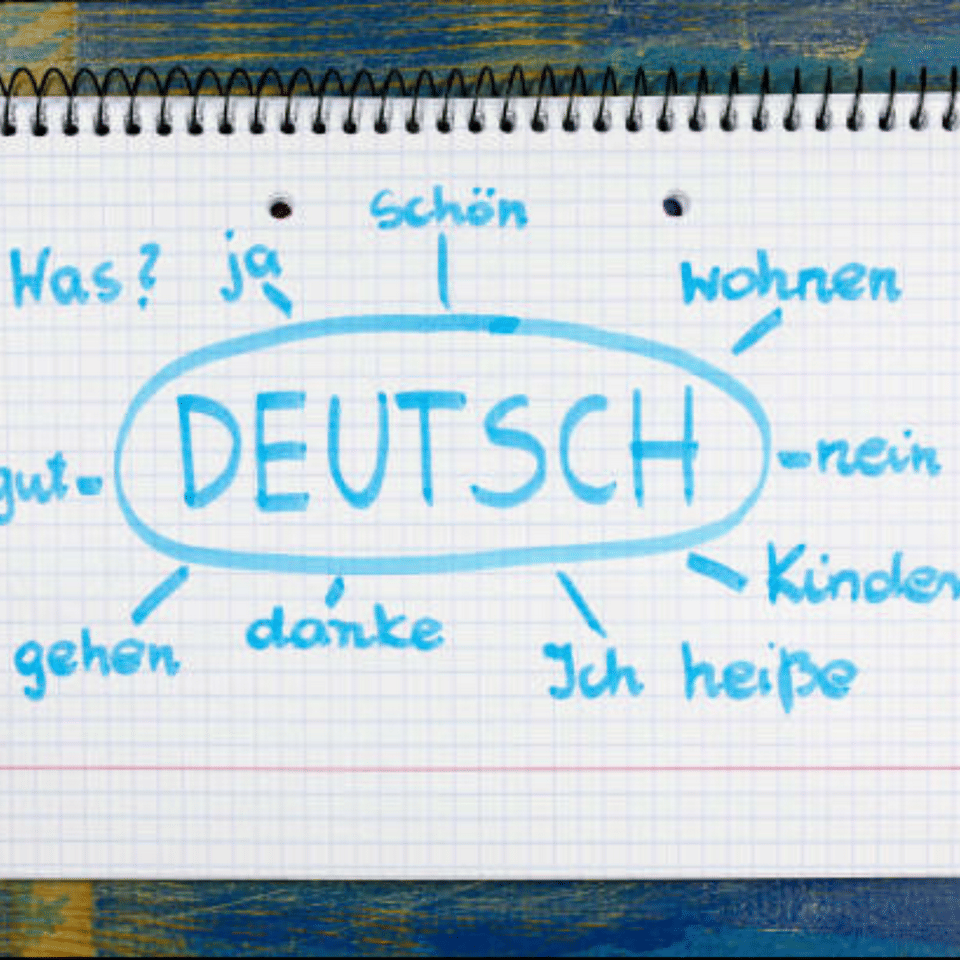 schön
Was? ja
wohnen
DEUTSCH
gut-
-nein
Kinder
gehen
danke
Ich heiße